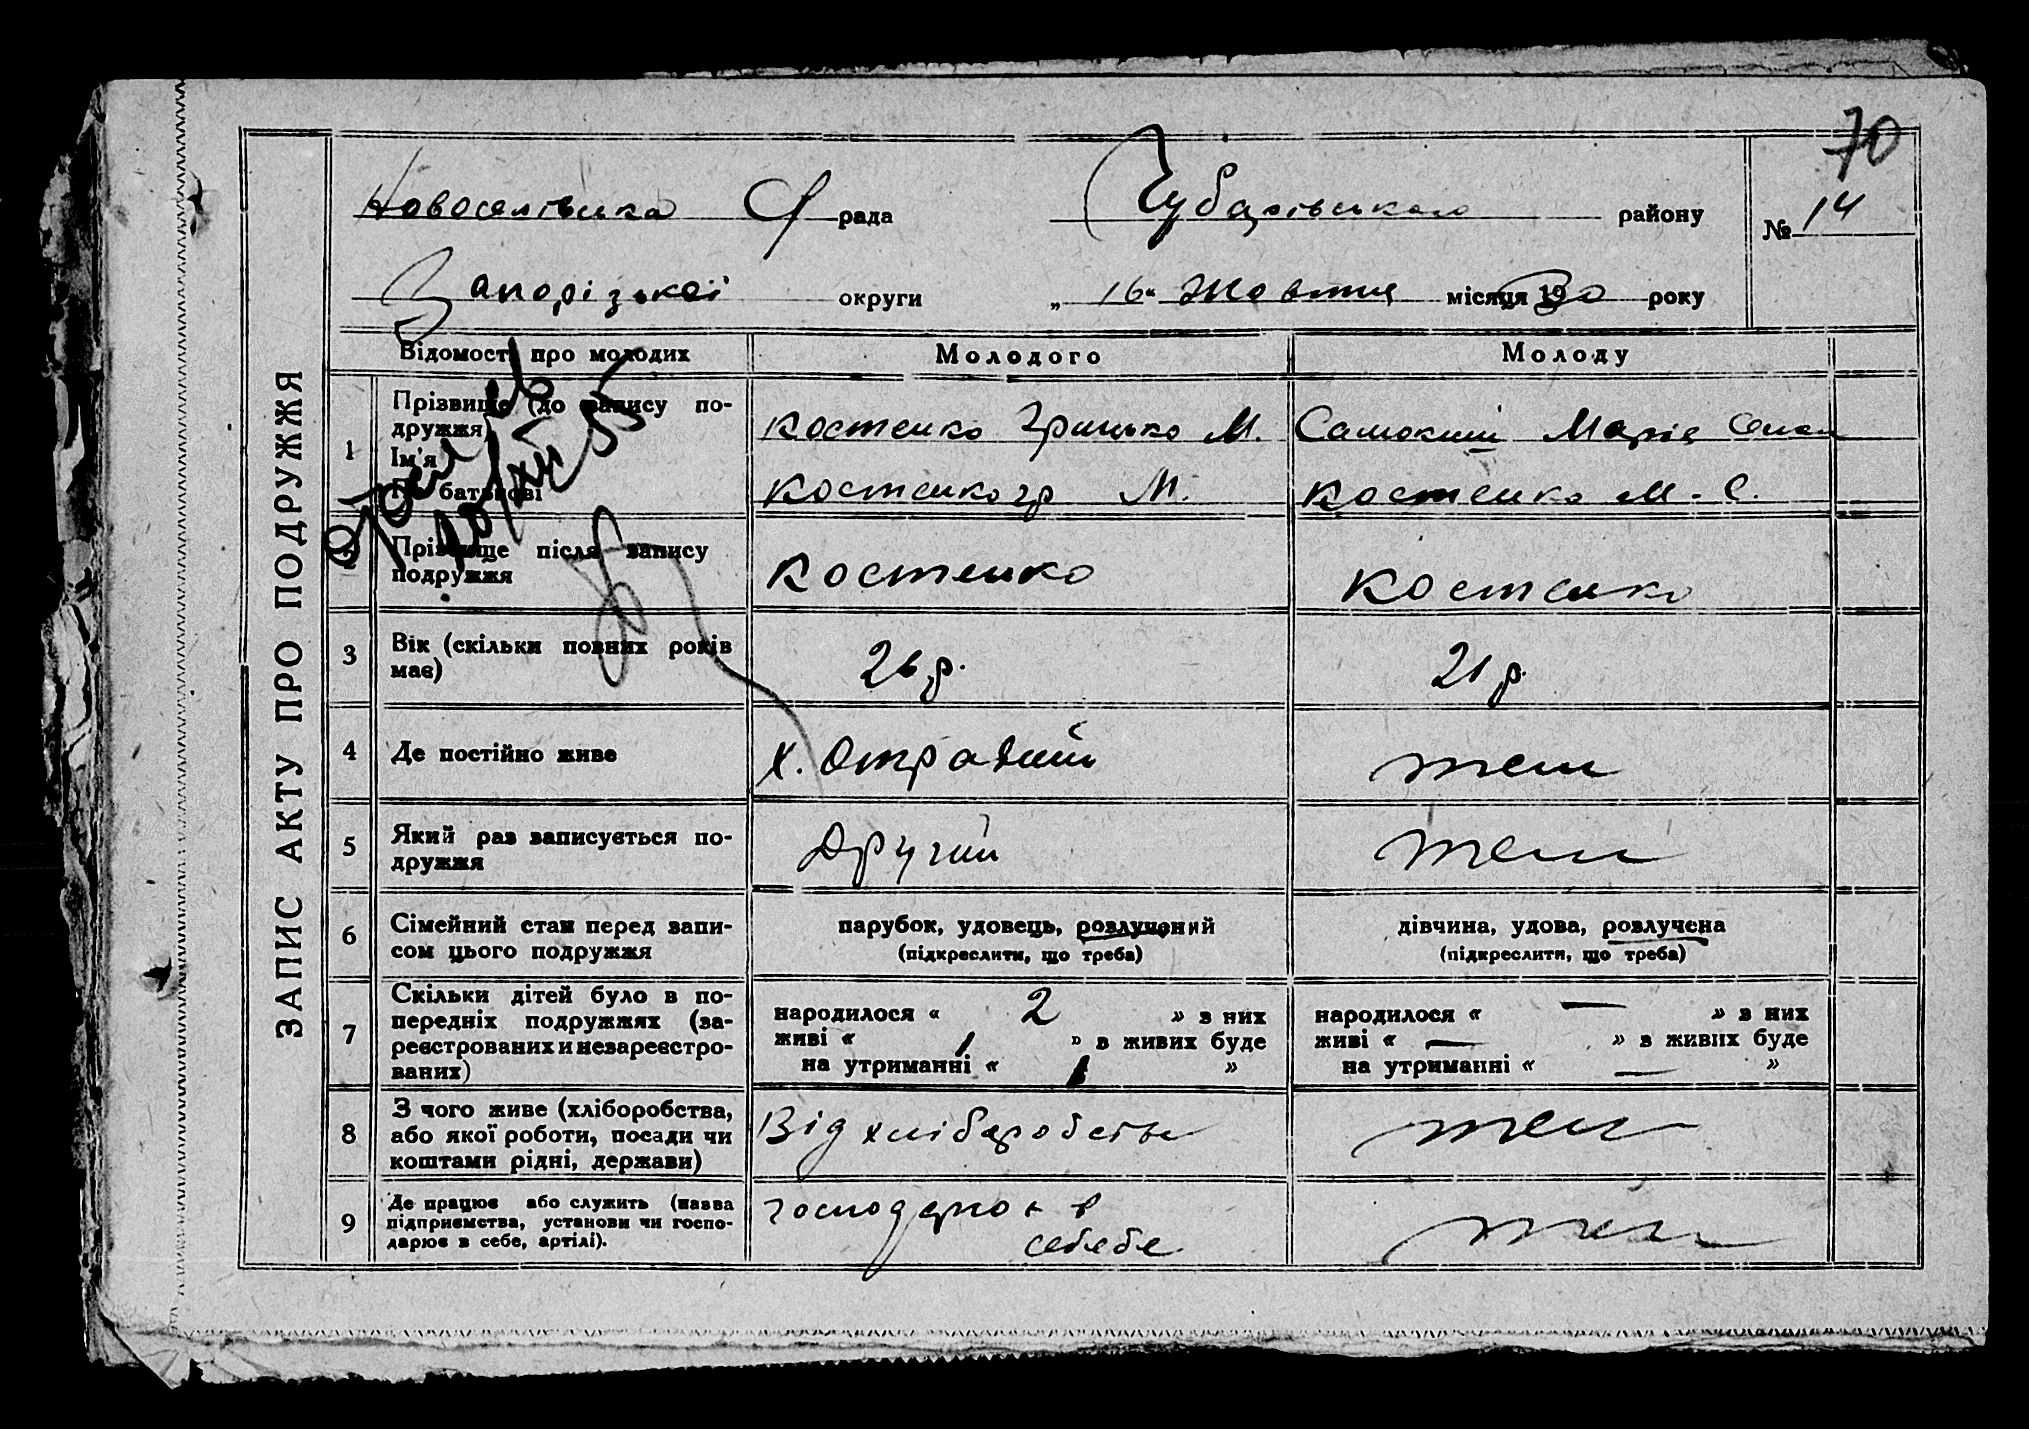 70
Новоселівська С/рада Чубарівського району № 14
Запорізької округи „ 16 “ Жовтня місяця 1930 року
ЗАПИС АКТУ ПРО ПОДРУЖЖЯ
Відомості про молодих Молодого Молоду
1 Прізвище (до запису подружжя)
Ім'я
По батькові
Костенко Грицько М.
Костенко гр М.
Марія Семен
Костенко М. С.
2 Прізвище після запису
подружжя
Костенко Костенко
3 Вік (скільки повних років
має)
26 р. 21 р.
4 Де постійно живе х. Отрадний теж
5 Який раз записується по-
дружжя
Другий теж
6 Сімейний стан перед запи-
сом цього подружжя
парубок, удовець, розлучений
(підкреслити, що треба)
дівчина, удова, розлучена
(підкреслити, що треба)
7 Скільки дітей було в по-
передніх подружжях (за-
реєстрованих и незареєстро-
ваних)
народилося « 2 » в них
живі « 1 » в живих буде
на утриманні « 1 »
народилося « — » в них
живі « — » в живих буде
на утриманні « — »
8 З чого живе (хліборобства,
або якої роботи, посади чи
коштами рідні, держави)
Від хліборобства теж
9 Де працює або служить (назва
підприємства, установи чи госпо-
дарює в себе, артілі).
господарює в
себебе
теж